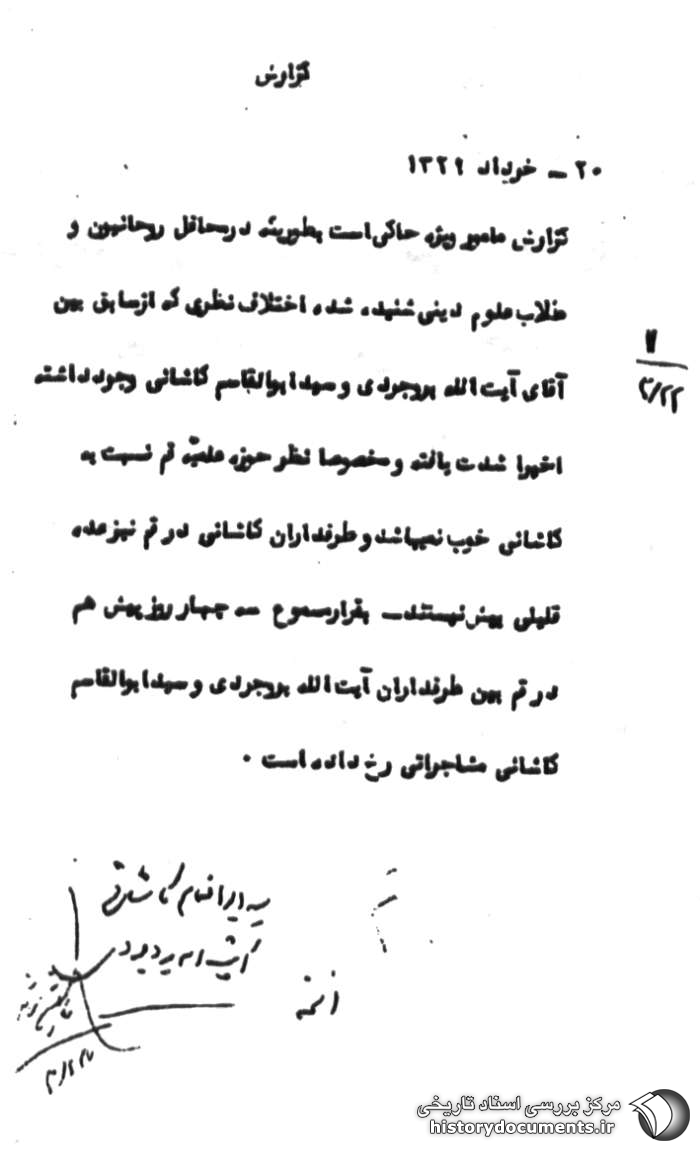 گزارش
۲۰ - خرداد ۱۳۲۹
گزارش مامور ویژه حاکی است بطوریکه در محافل روحانیون و
طلاب علوم دینی شنیده شده اختلاف نظری که از سابق بین
آقای آیت الله بروجردی و سید ابوالقاسم کاشانی وجود داشته
اخیرا شدت یافته و مخصوصا نظر حوزه علمیه قم نسبت به
کاشانی خوب نمیباشد و طرفداران کاشانی در قم نیز عده
قلیلی بیش نیستند - بقرار مسموع سه چهار روز پیش هم
در قم بین طرفداران آیت الله بروجردی و سید ابوالقاسم
کاشانی مشاجراتی رخ داده است .
۳/۲۲
مرکز بررسی اسناد تاریخی
historydocuments.ir